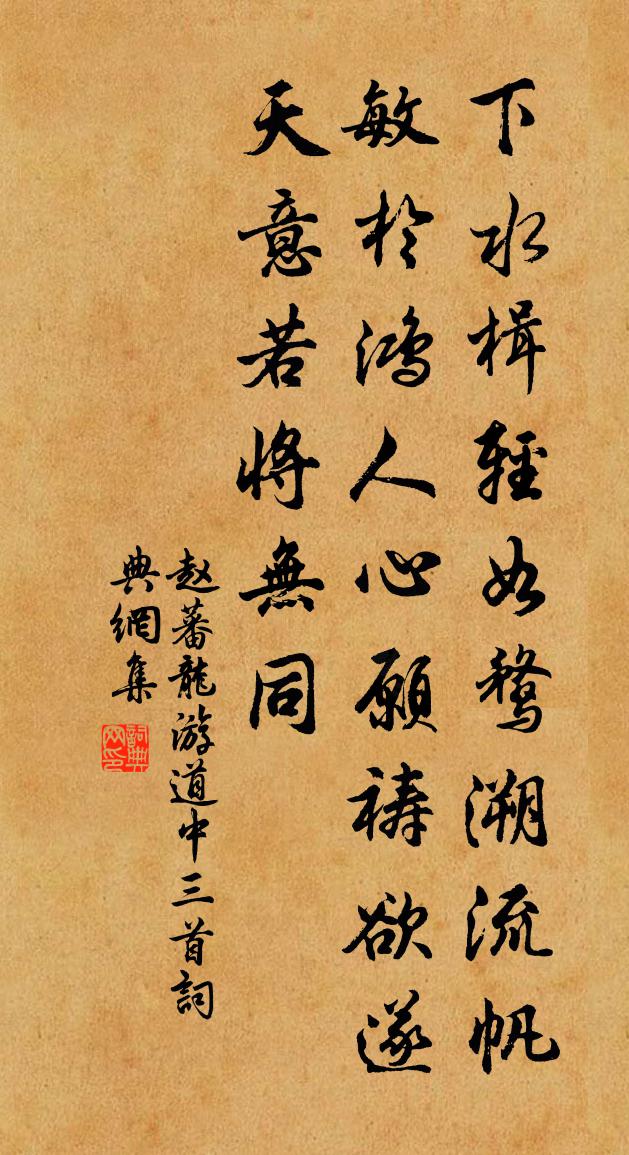 下水楫輕如鶩溯流帆
敏於鴻人心願祷欲遂
天意若将無同
赵蕃龍游道中三首詞
典網集
詞典网印